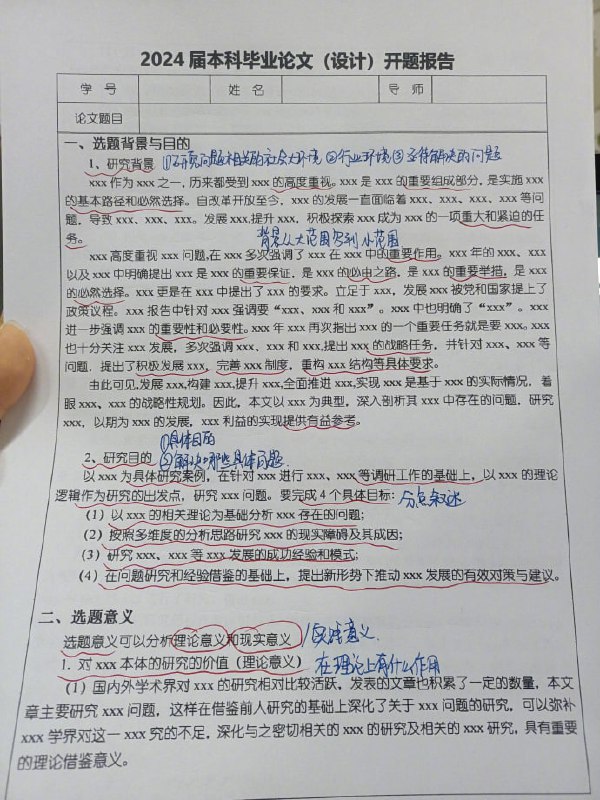 2024 届本科毕业论文（设计）开题报告
学 号 姓 名 导 师
论文题目
一、选题背景与目的
1、研究背景 ①研究问题相关的社会大环境 ②行业环境 ③亟待解决的问题
xxx 作为 xxx 之一, 历来都受到 xxx 的高度重视。xxx 是 xxx 的重要组成部分, 是实施 xxx
的基本路径和必然选择。自改革开放至今, xxx 的发展一直面临着 xxx、xxx、xxx、xxx 等问
题, 导致 xxx、xxx、xxx。发展 xxx,提升 xxx, 积极探索 xxx 成为 xxx 的一项重大和紧迫的任
务。 背景从大范围写到小范围
xxx 高度重视 xxx 问题,在 xxx 多次强调了 xxx 在 xxx 中的重要作用。xxx 年的 xxx、xxx
以及 xxx 中明确提出 xxx 是 xxx 的重要保证, 是 xxx 的必由之路, 是 xxx 的重要举措, 是 xxx
的必然选择。xxx 更是在 xxx 中提出了 xxx 的要求。立足于 xxx, 发展 xxx 被党和国家提上了
政策议程。xxx 报告中针对 xxx 强调要“xxx、xxx 和 xxx”。xxx 中也明确了“xxx”。xxx
进一步强调 xxx 的重要性和必要性。xxx 年 xxx 再次指出 xxx 的一个重要任务就是要 xxx。xxx
也十分关注 xxx 发展, 多次强调 xxx、xxx 和 xxx,提出 xxx 的战略任务, 并针对 xxx、xxx 等
问题. 提出了积极发展 xxx, 完善 xxx 制度, 重构 xxx 结构等具体要求。
由此可见,发展 xxx,构建 xxx,提升 xxx,全面推进 xxx,实现 xxx 是基于 xxx 的实际情况, 着
眼 xxx、xxx 的战略性规划。因此, 本文以 xxx 为典型, 深入剖析其 xxx 中存在的问题, 研究
xxx, 以期为 xxx 的发展, xxx 利益的实现提供有益参考。
①具体目的
2、研究目的 ②解决哪些具体问题.
以 xxx 为具体研究案例, 在针对 xxx 进行 xxx、xxx 等调研工作的基础上, 以 xxx 的理论
逻辑作为研究的出发点, 研究 xxx 问题。要完成 4 个具体目标: 分点叙述
(1) 以 xxx 的相关理论为基础分析 xxx 存在的问题;
(2) 按照多维度的分析思路研究 xxx 的现实障碍及其成因;
(3) 研究 xxx、xxx 等 xxx 发展的成功经验和模式;
(4) 在问题研究和经验借鉴的基础上, 提出新形势下推动 xxx 发展的有效对策与建议。
二、选题意义
选题意义可以分析理论意义和现实意义 /实践意义.
1. 对 xxx 本体的研究的价值（理论意义） 在理论上有什么作用
(1) 国内外学术界对 xxx 的研究相对比较活跃, 发表的文章也积累了一定的数量, 本文
章主要研究 xxx 问题, 这样在借鉴前人研究的基础上深化了关于 xxx 问题的研究, 可以弥补
xxx 学界对这一 xxx 究的不足, 深化与之密切相关的 xxx 的研究及相关的 xxx 研究, 具有重要
的理论借鉴意义。